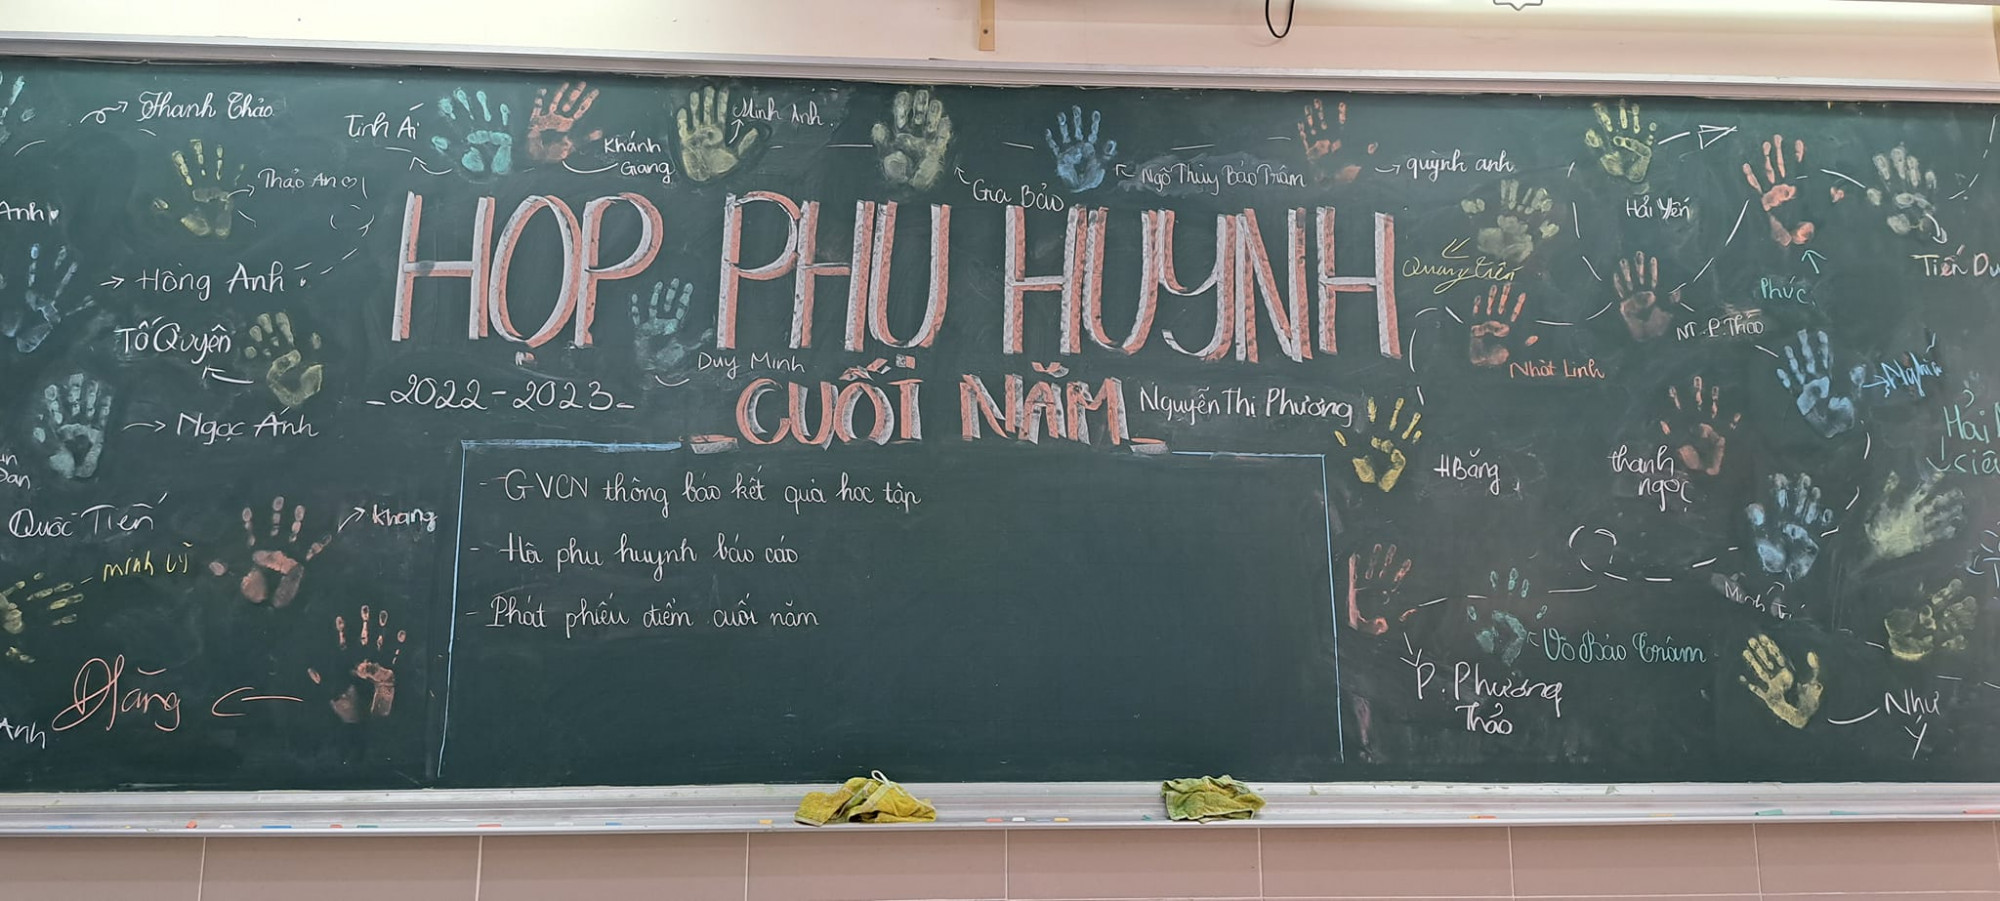 Thanh Thảo
Tinh Ái
Khánh Giang
Minh Anh.
Thảo An
Anh
Gia Bảo
Ngô Thùy Bảo Trâm
quỳnh anh
Hải Yến
HỌP PHỤ HUYNH
Quang tiên
Phúc
Tiến Du
Hồng Anh
Tố Quyên
Duy Minh
NT.P.Thảo
Nhật Linh
_2022-2023_
CUỐI NĂM
Nguyễn Thị Phương
Ngọc Ánh
HBăng
thanh ngọc
Hải
- GVCN thông báo kết quả học tập
Quốc Tiến
khang
- Hội phụ huynh báo cáo
minh Lý
- Phát phiếu điểm cuối năm
Minh Trí
Võ Bảo Trâm
P. Phương Thảo
Đăng
Anh
Như Ý